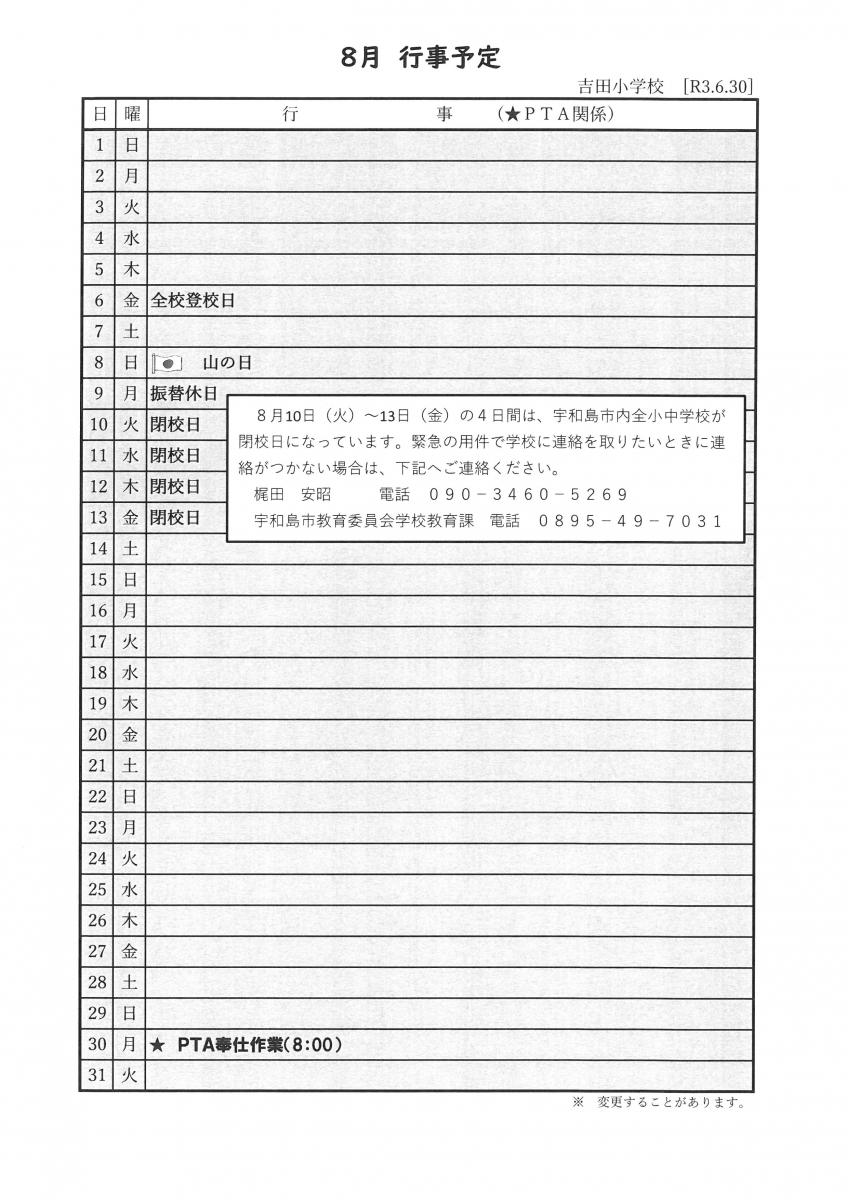 8月 行事予定
吉田小学校 [R3.6.30]
日 曜 行 事 （★ＰＴＡ関係）
1 日
2 月
3 火
4 水
5 木
6 金 全校登校日
7 土
8 日 山の日
9 月 振替休日
10 火 閉校日
11 水 閉校日
12 木 閉校日
13 金 閉校日
８月10日（火）～13日（金）の４日間は、宇和島市内全小中学校が
閉校日になっています。緊急の用件で学校に連絡を取りたいときに連
絡がつかない場合は、下記へご連絡ください。
梶田 安昭 電話 ０９０－３４６０－５２６９
宇和島市教育委員会学校教育課 電話 ０８９５－４９－７０３１
14 土
15 日
16 月
17 火
18 水
19 木
20 金
21 土
22 日
23 月
24 火
25 水
26 木
27 金
28 土
29 日
30 月 ★ PTA奉仕作業（8：00）
31 火
※ 変更することがあります。